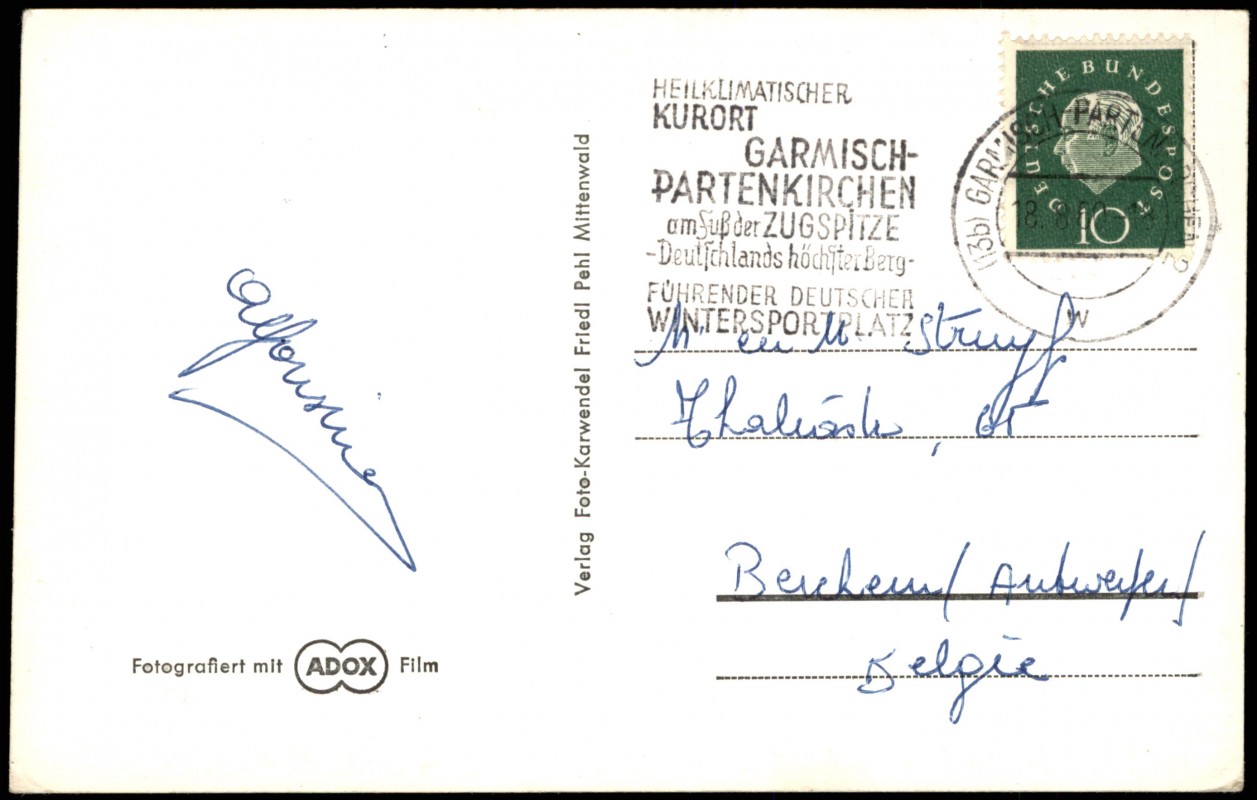 Alfonsine
Fotografiert mit ADOX Film
Verlag Foto-Karwendel Friedl Pehl Mittenwald
HEILKLIMATISCHER
KURORT
GARMISCH-
PARTENKIRCHEN
am Fuß der ZUGSPITZE
-Deutschlands höchster Berg-
FÜHRENDER DEUTSCHER
WINTERSPORTPLATZ
DEUTSCHE BUNDESPOST
10
(13b) GARMISCH-PARTENKIRCHEN 2
18. 8.
w
Mr en M Struyf
Berchem / Antwerpen /
Belgïe